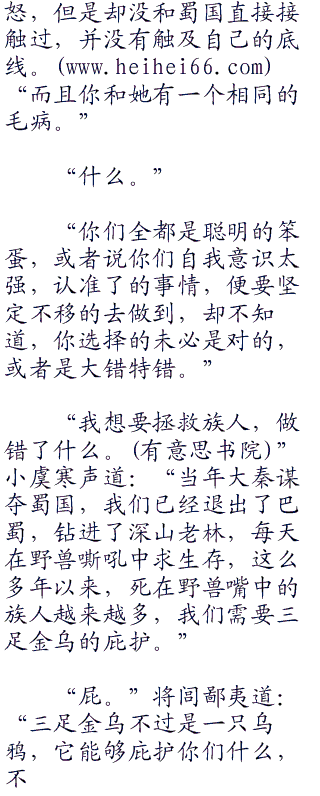 怒，但是却没和蜀国直接接
触过，并没有触及自己的底
线。(www.heihei66.com)
“而且你和她有一个相同的
毛病。”
“什么。”
“你们全都是聪明的笨
蛋，或者说你们自我意识太
强，认准了的事情，便要坚
定不移的去做到，却不知
道，你选择的未必是对的，
或者是大错特错。”
“我想要拯救族人，做
错了什么。(有意思书院)”
小虞寒声道：“当年大秦谋
夺蜀国，我们已经退出了巴
蜀，钻进了深山老林，每天
在野兽嘶吼中求生存，这么
多年以来，死在野兽嘴中的
族人越来越多，我们需要三
足金乌的庇护。”
“屁。”将闾鄙夷道：
“三足金乌不过是一只乌
鸦，它能够庇护你们什么，
不